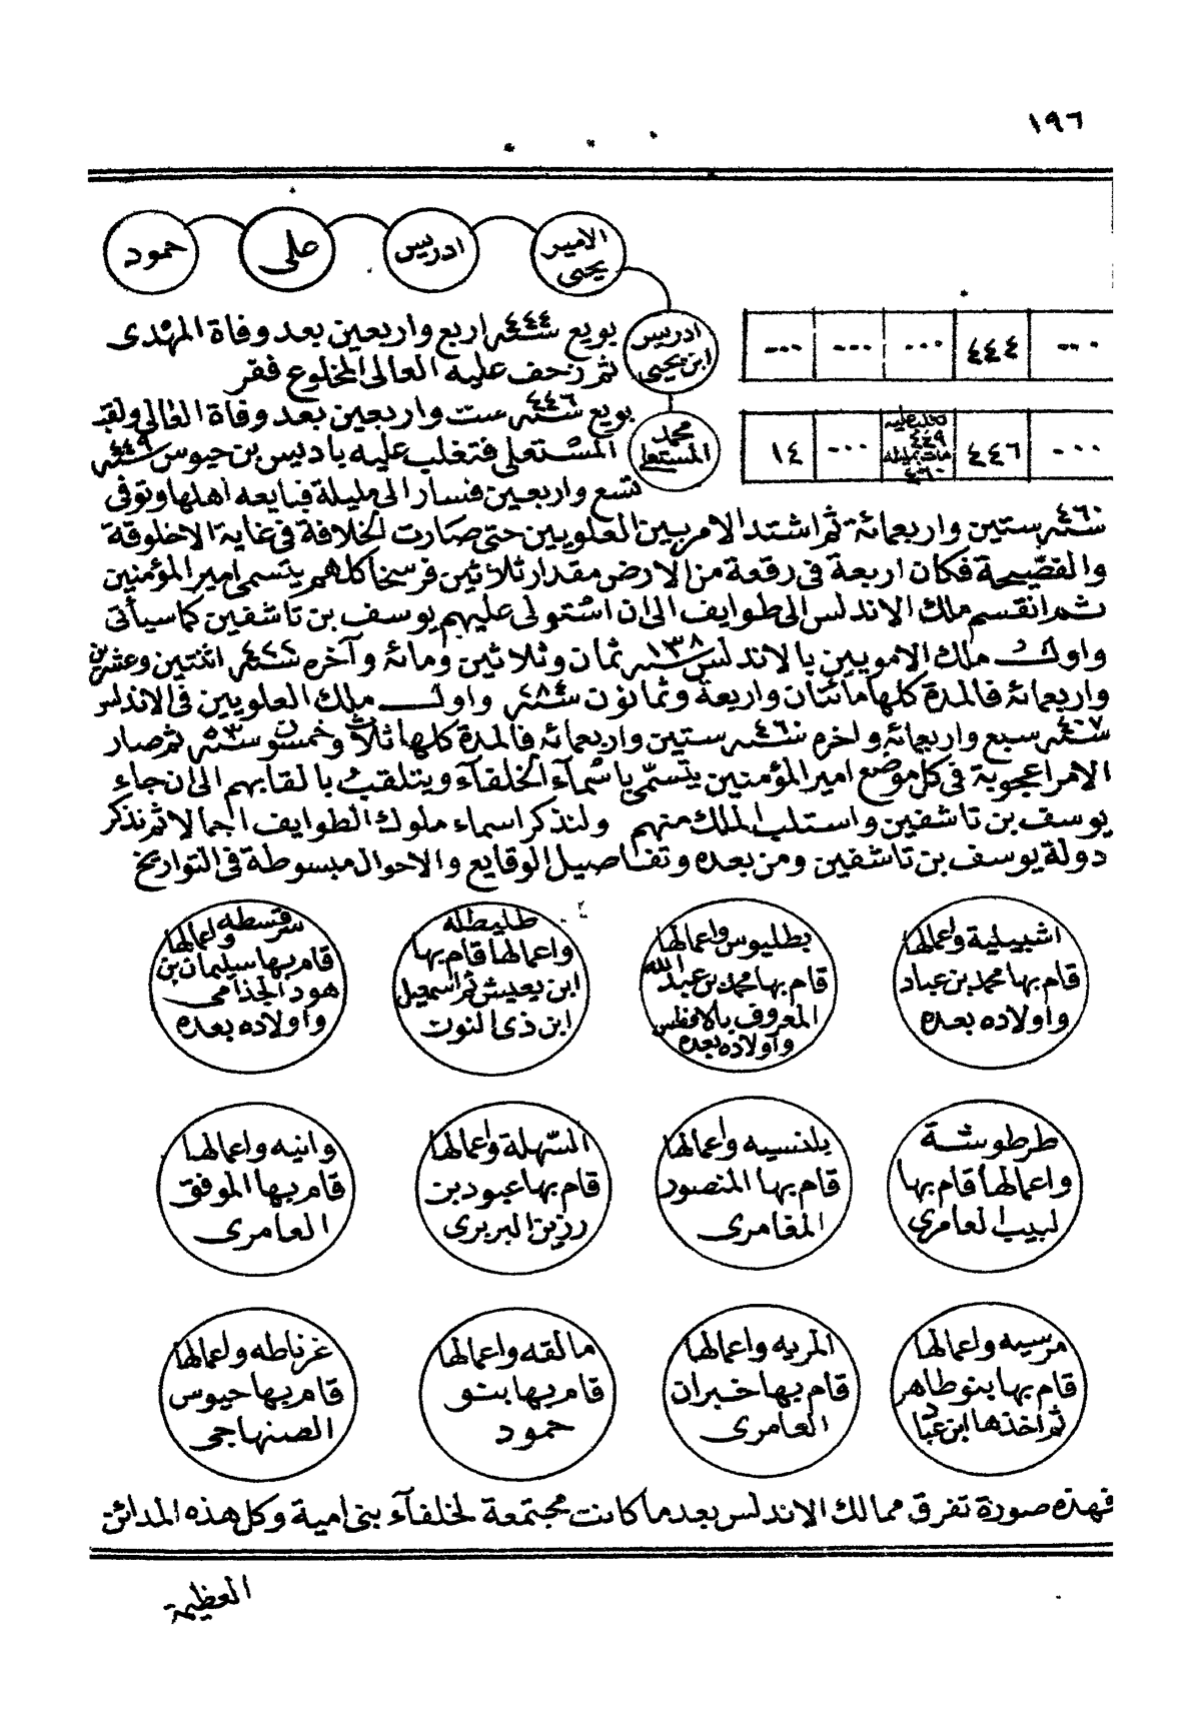 ١٩٦
حمود
على
ادريس
الامير
يحيى
ادريس
ابن يحيى
٤٤٤
بويع سنة ٤٤٤ اربع واربعين بعد وفاة المهدى
ثم زحف عليه العالى المخلوع ففر
محمد
المستعلى
٤٤٦
تغلب عليه
٤٤٩
مات بمليله
٤٦٠
١٤
بويع سنة ٤٤٦ ست واربعين بعد وفاة العالى ولقب
المستعلى فتغلب عليه باديس بن حيوس سنة ٤٤٩
تسع واربعين فسار الى مليلة فبايعه اهلها وتوفى
سنة ٤٦٠ ستين واربعمائة ثم اشتد الامر بين العلويين حتى صارت الخلافة فى غاية الاخلوقة
والفضيحة فكان اربعة فى رقعة من الارض مقدار ثلاثين فرسخا كلهم يتسمى امير المؤمنين
ثم انقسم ملك الاندلس الى طوايف الى ان استولى عليهم يوسف بن تاشفين كما سيأتى
واول ملك الامويين بالاندلس سنة ١٣٨ ثمان وثلاثين ومائة وآخره سنة ٤٢٢ اثنتين وعشرين
واربعمائة فالمدة كلها مائتان واربعة وثمانون سنة ٢٨٤ واول ملك العلويين فى الاندلس
سنة ٤٠٧ سبع واربعمائة واخره سنة ٤٦٠ ستين واربعمائة فالمدة كلها ثلاث وخمسون سنة ٥٣ ثم صار
الامر اعجوبة فى كل موضع امير المؤمنين يتسمى باسماء الخلفآء ويتلقب بالقابهم الى ان جاء
يوسف بن تاشفين واستلب الملك منهم ولنذكر اسماء ملوك الطوايف اجمالا ثم نذكر
دولة يوسف بن تاشفين ومن بعده وتفاصيل الوقايع والاحوال مبسوطة فى التواريخ
اشبيلية واعمالها
قام بها محمد بن عباد
واولاده بعده
بطليوس واعمالها
قام بها محمد بن عبد الله
المعروف بالافطس
واولاده بعده
طليطله
واعمالها قام بها
ابن يعيش ثم اسمعيل
ابن ذى النون
سرقسطه واعمالها
قام بها سيلمان بن
هود الجذامى
واولاده بعده
طرطوشة
واعمالها قام بها
لبيب العامرى
بلنسيه واعمالها
قام بها المنصور
المغامرى
السهلة واعمالها
قام بها عبود بن
رزين البربرى
وانيه واعمالها
قام بها الموفق
العامرى
مرسيه واعمالها
قام بها بنو طاهر
ثم اخذها ابن عباد
المريه واعمالها
قام بها خيران
العامرى
مالقه واعمالها
قام بها بنو
حمود
غرناطه واعمالها
قام بها حيوس
الصنهاجى
فهذه صورة تفرق ممالك الاندلس بعد ما كانت مجتمعة لخلفآء بنى امية وكل هذه المدائن
العظيمة